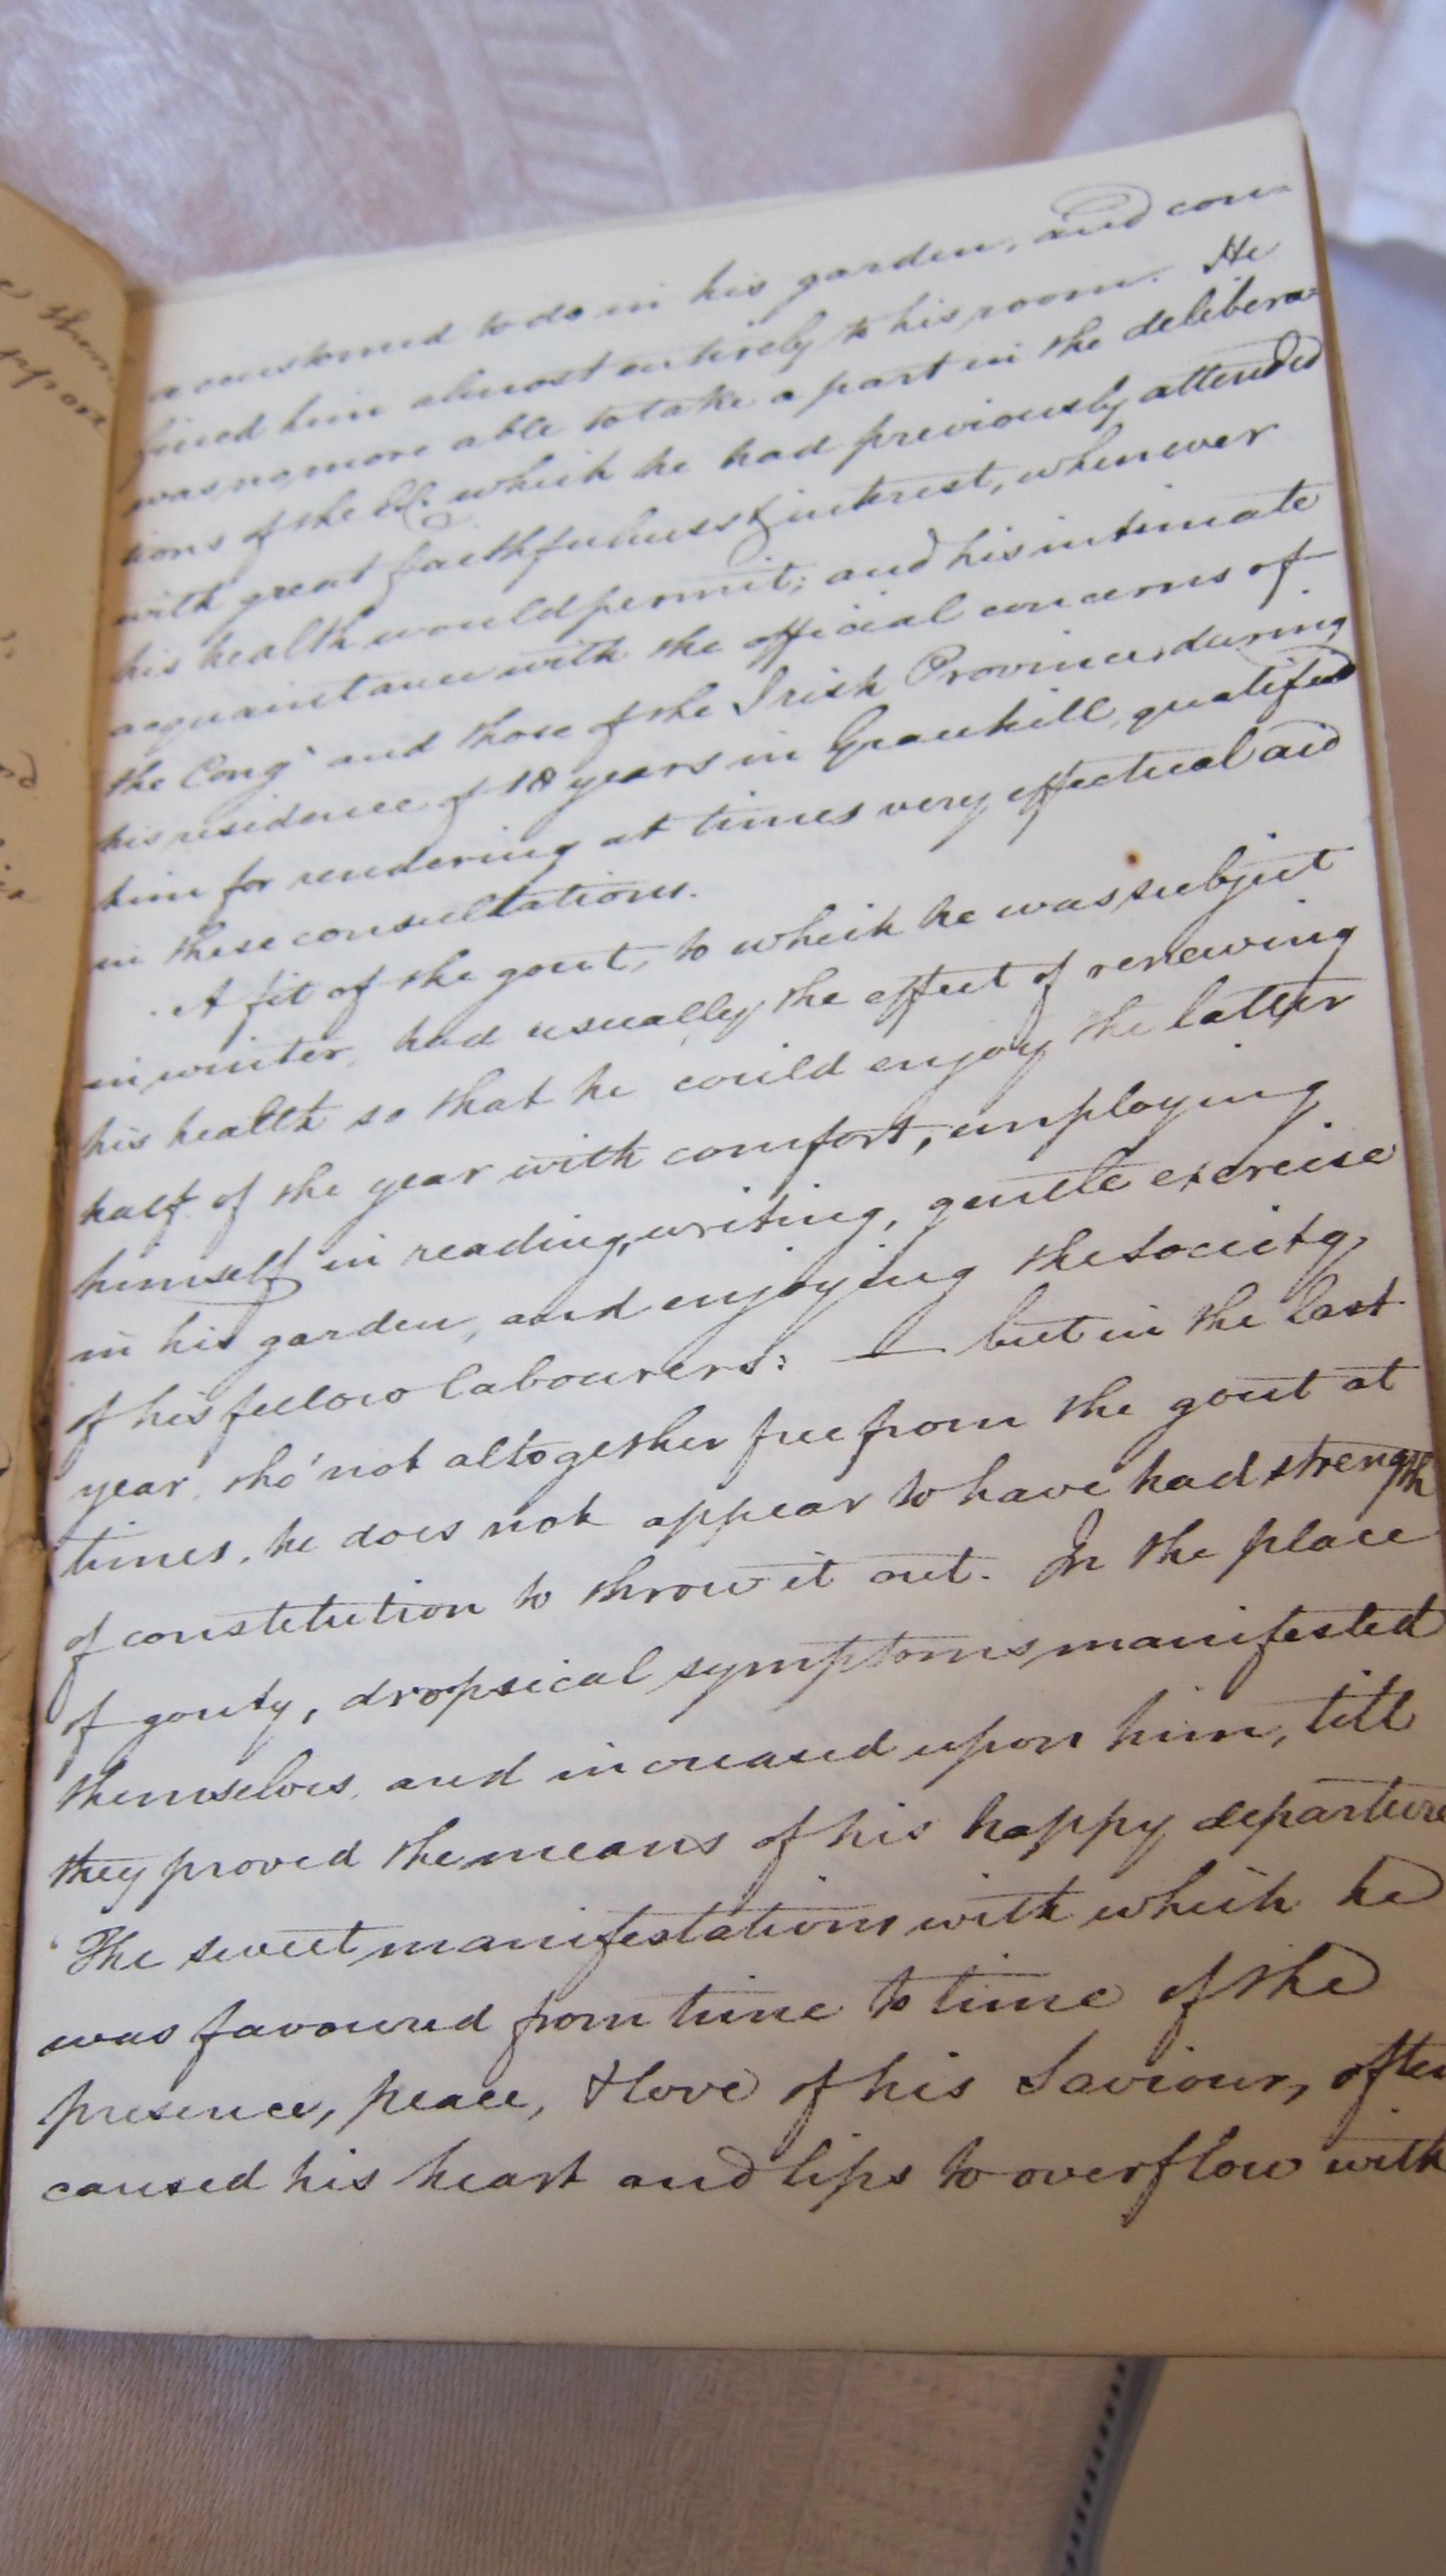 them
pport
accustomed to do in his garden, and con=
fined him almost entirely to his room. He
was no more able to take a part in the delibera=
tions of the which he had previously attended
with great faithfulness & interest, whenever
his health would permit; and his intimate
acquaintance with the official concerns of
the Cong.ⁿ and those of the Irish Province, during
his residence of 18 years in Gracehill, qualified
him for rendering at times very effectual aid
in these consultations.
A fit of the gout, to which he was subject
in winter, had usually the effect of renewing
his health so that he could enjoy the latter
half of the year with comfort, employing
himself in reading, writing, gentle exercise
in his garden, and enjoying the society
of his fellow labourers: — but in the last
year, tho' not altogether free from the gout at
times, he does not appear to have had strength
of constitution to throw it out. In the place
of gouty, dropsical symptoms manifested
themselves, and increased upon him, till
they proved the means of his happy departure
The sweet manifestations with which he
was favoured from time to time of the
presence, peace, & love of his Saviour, often
caused his heart and lips to overflow with